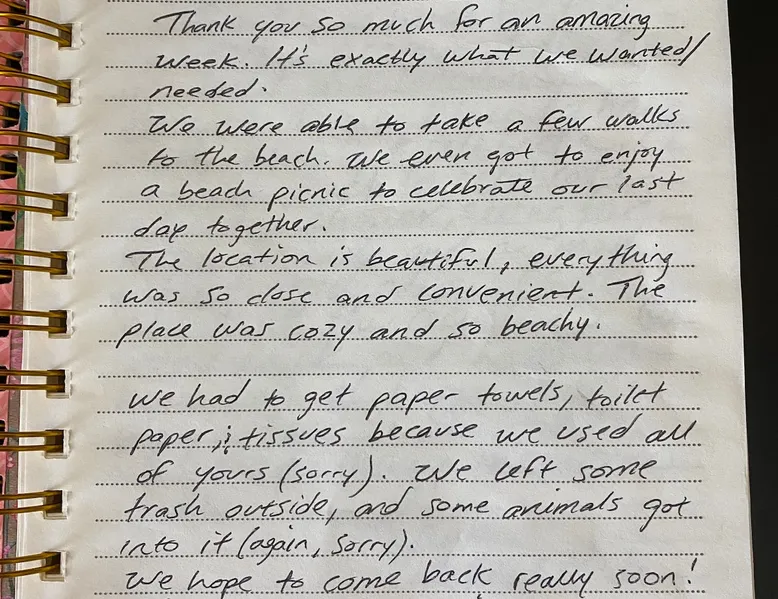 Thank you so much for an amazing
week. It's exactly what we wanted/
needed.
We were able to take a few walks
to the beach. We even got to enjoy
a beach picnic to celebrate our last
day together.
The location is beautiful, everything
was so close and convenient. The
place was cozy and so beachy.
We had to get paper towels, toilet
paper, & tissues because we used all
of yours (sorry). We left some
trash outside, and some animals got
into it (again, sorry).
We hope to come back really soon!